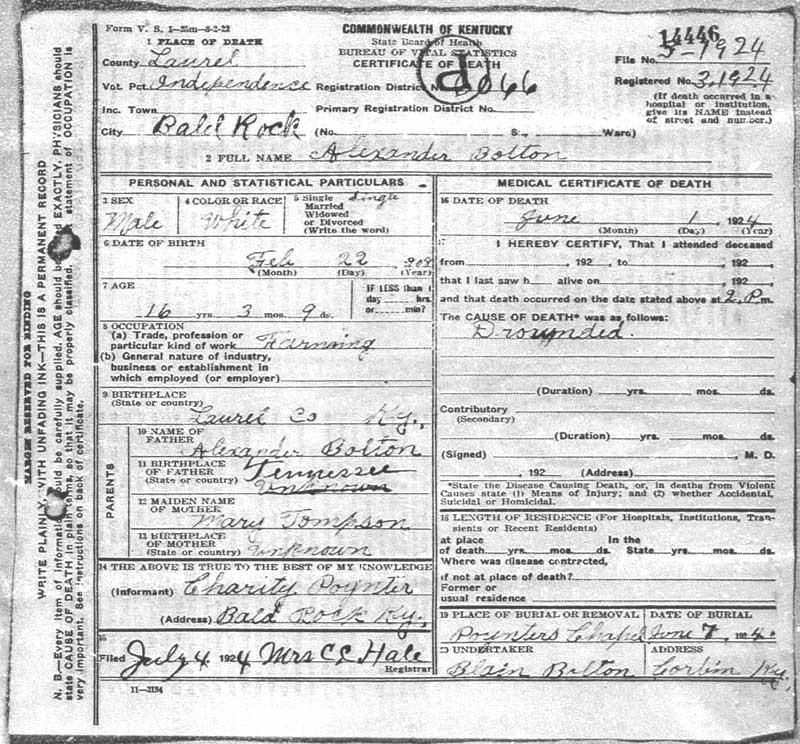 Form V. S. 1—25m—8-2-22
COMMONWEALTH OF KENTUCKY
State Board of Health
BUREAU OF VITAL STATISTICS
CERTIFICATE OF DEATH
14446
File No. 5-1924
Registered No. 3,1924
(If death occurred in a
hospital or institution,
give its NAME instead
of street and number.)
1 PLACE OF DEATH
County Laurel
Vot. Pct. Independence Registration District No. 6066
Inc. Town Primary Registration District No.
City Bald Rock (No. S., Ward)
2 FULL NAME Alexander Bolton
PERSONAL AND STATISTICAL PARTICULARS
3 SEX
Male
4 COLOR OR RACE
White
5 Single Single
Married
Widowed
or Divorced
(Write the word)
6 DATE OF BIRTH
Feb 22 908
(Month) (Day) (Year)
7 AGE
16 yrs. 3 mos. 9 ds.
IF LESS than 1
day hrs.
or min?
8 OCCUPATION
(a) Trade, profession or
particular kind of work Farming
(b) General nature of industry,
business or establishment in
which employed (or employer)
9 BIRTHPLACE
(State or country)
Laurel Co Ky.,
PARENTS
10 NAME OF
FATHER
Alexander Bolton
11 BIRTHPLACE
OF FATHER Tennessee
(State or country) Unknown
12 MAIDEN NAME
OF MOTHER
Mary Tompson
13 BIRTHPLACE
OF MOTHER
(State or country) Unknown
14 THE ABOVE IS TRUE TO THE BEST OF MY KNOWLEDGE
(Informant) Charity Poynter
(Address) Bald Rock Ky,
15
Filed July 4 1924 Mrs C L Hale
Registrar
11—3184
MEDICAL CERTIFICATE OF DEATH
16 DATE OF DEATH
June 1, 1924
(Month) (Day) (Year)
17 I HEREBY CERTIFY, That I attended deceased
from , 192 , to , 192 ,
that I last saw h alive on , 192 ,
and that death occurred on the date stated above at 2 P. m.
The CAUSE OF DEATH* was as follows:
Drownded.
(Duration) yrs. mos. ds.
Contributory
(Secondary)
(Duration) yrs. mos. ds.
(Signed) , M. D.
, 192 (Address)
*State the Disease Causing Death, or, in deaths from Violent
Causes state (1) Means of Injury; and (2) whether Accidental,
Suicidal or Homicidal.
18 LENGTH OF RESIDENCE (For Hospitals, Institutions, Tran-
sients or Recent Residents)
at place In the
of death yrs. mos. ds. State yrs. mos. ds.
Where was disease contracted,
if not at place of death?
Former or
usual residence
19 PLACE OF BURIAL OR REMOVAL
Poynters Chapel
DATE OF BURIAL
June 7, 1924.
20 UNDERTAKER
Blain Bolton
ADDRESS
Corbin Ky,
MARGIN RESERVED FOR BINDING
WRITE PLAINLY, WITH UNFADING INK—THIS IS A PERMANENT RECORD
N. B.—Every item of information should be carefully supplied. AGE should be EXACTLY. PHYSICIANS should
state CAUSE OF DEATH in plain terms, so that it may be properly classified. statement of OCCUPATION is
very important. See instructions on back of certificate.